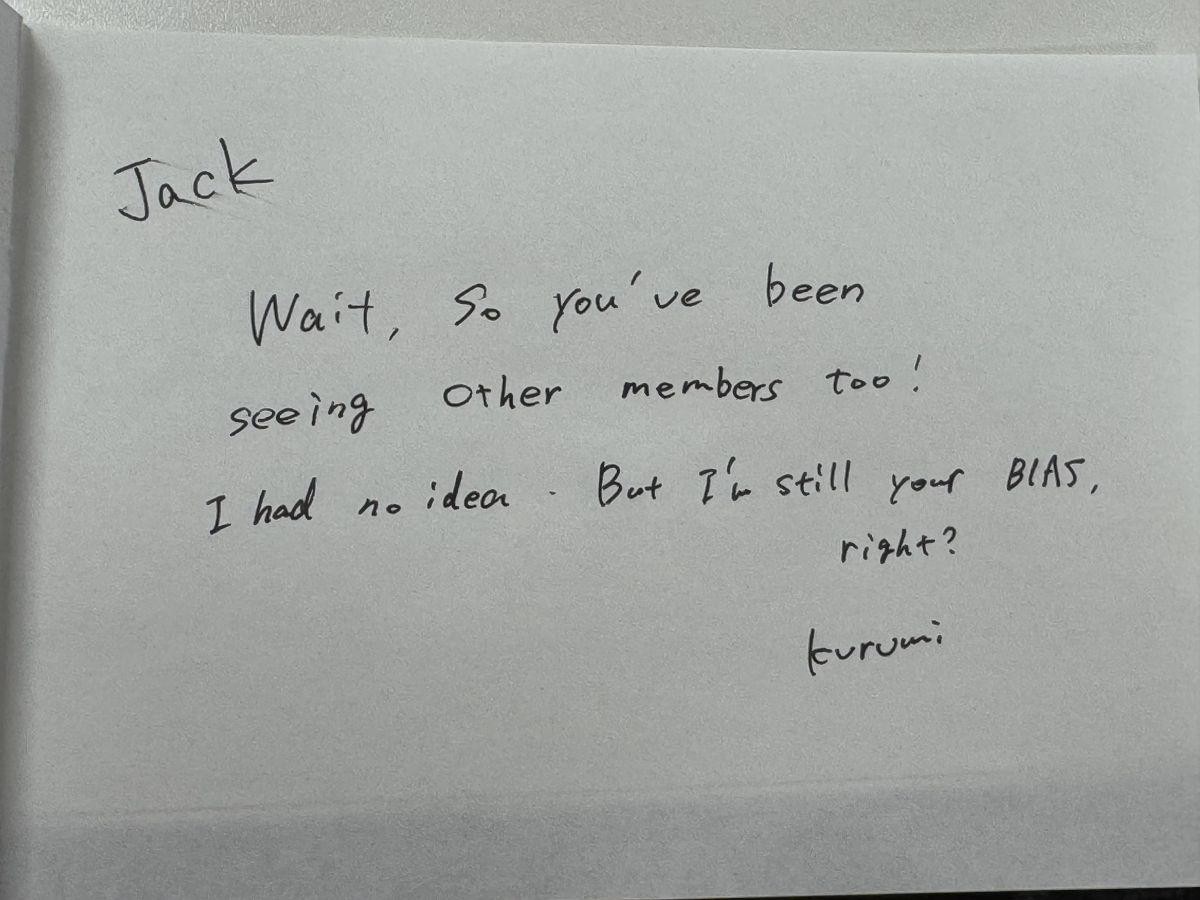 Jack
Wait, So you've been
seeing other members too!
I had no idea. But I'm still your BIAS,
right?
kurumi